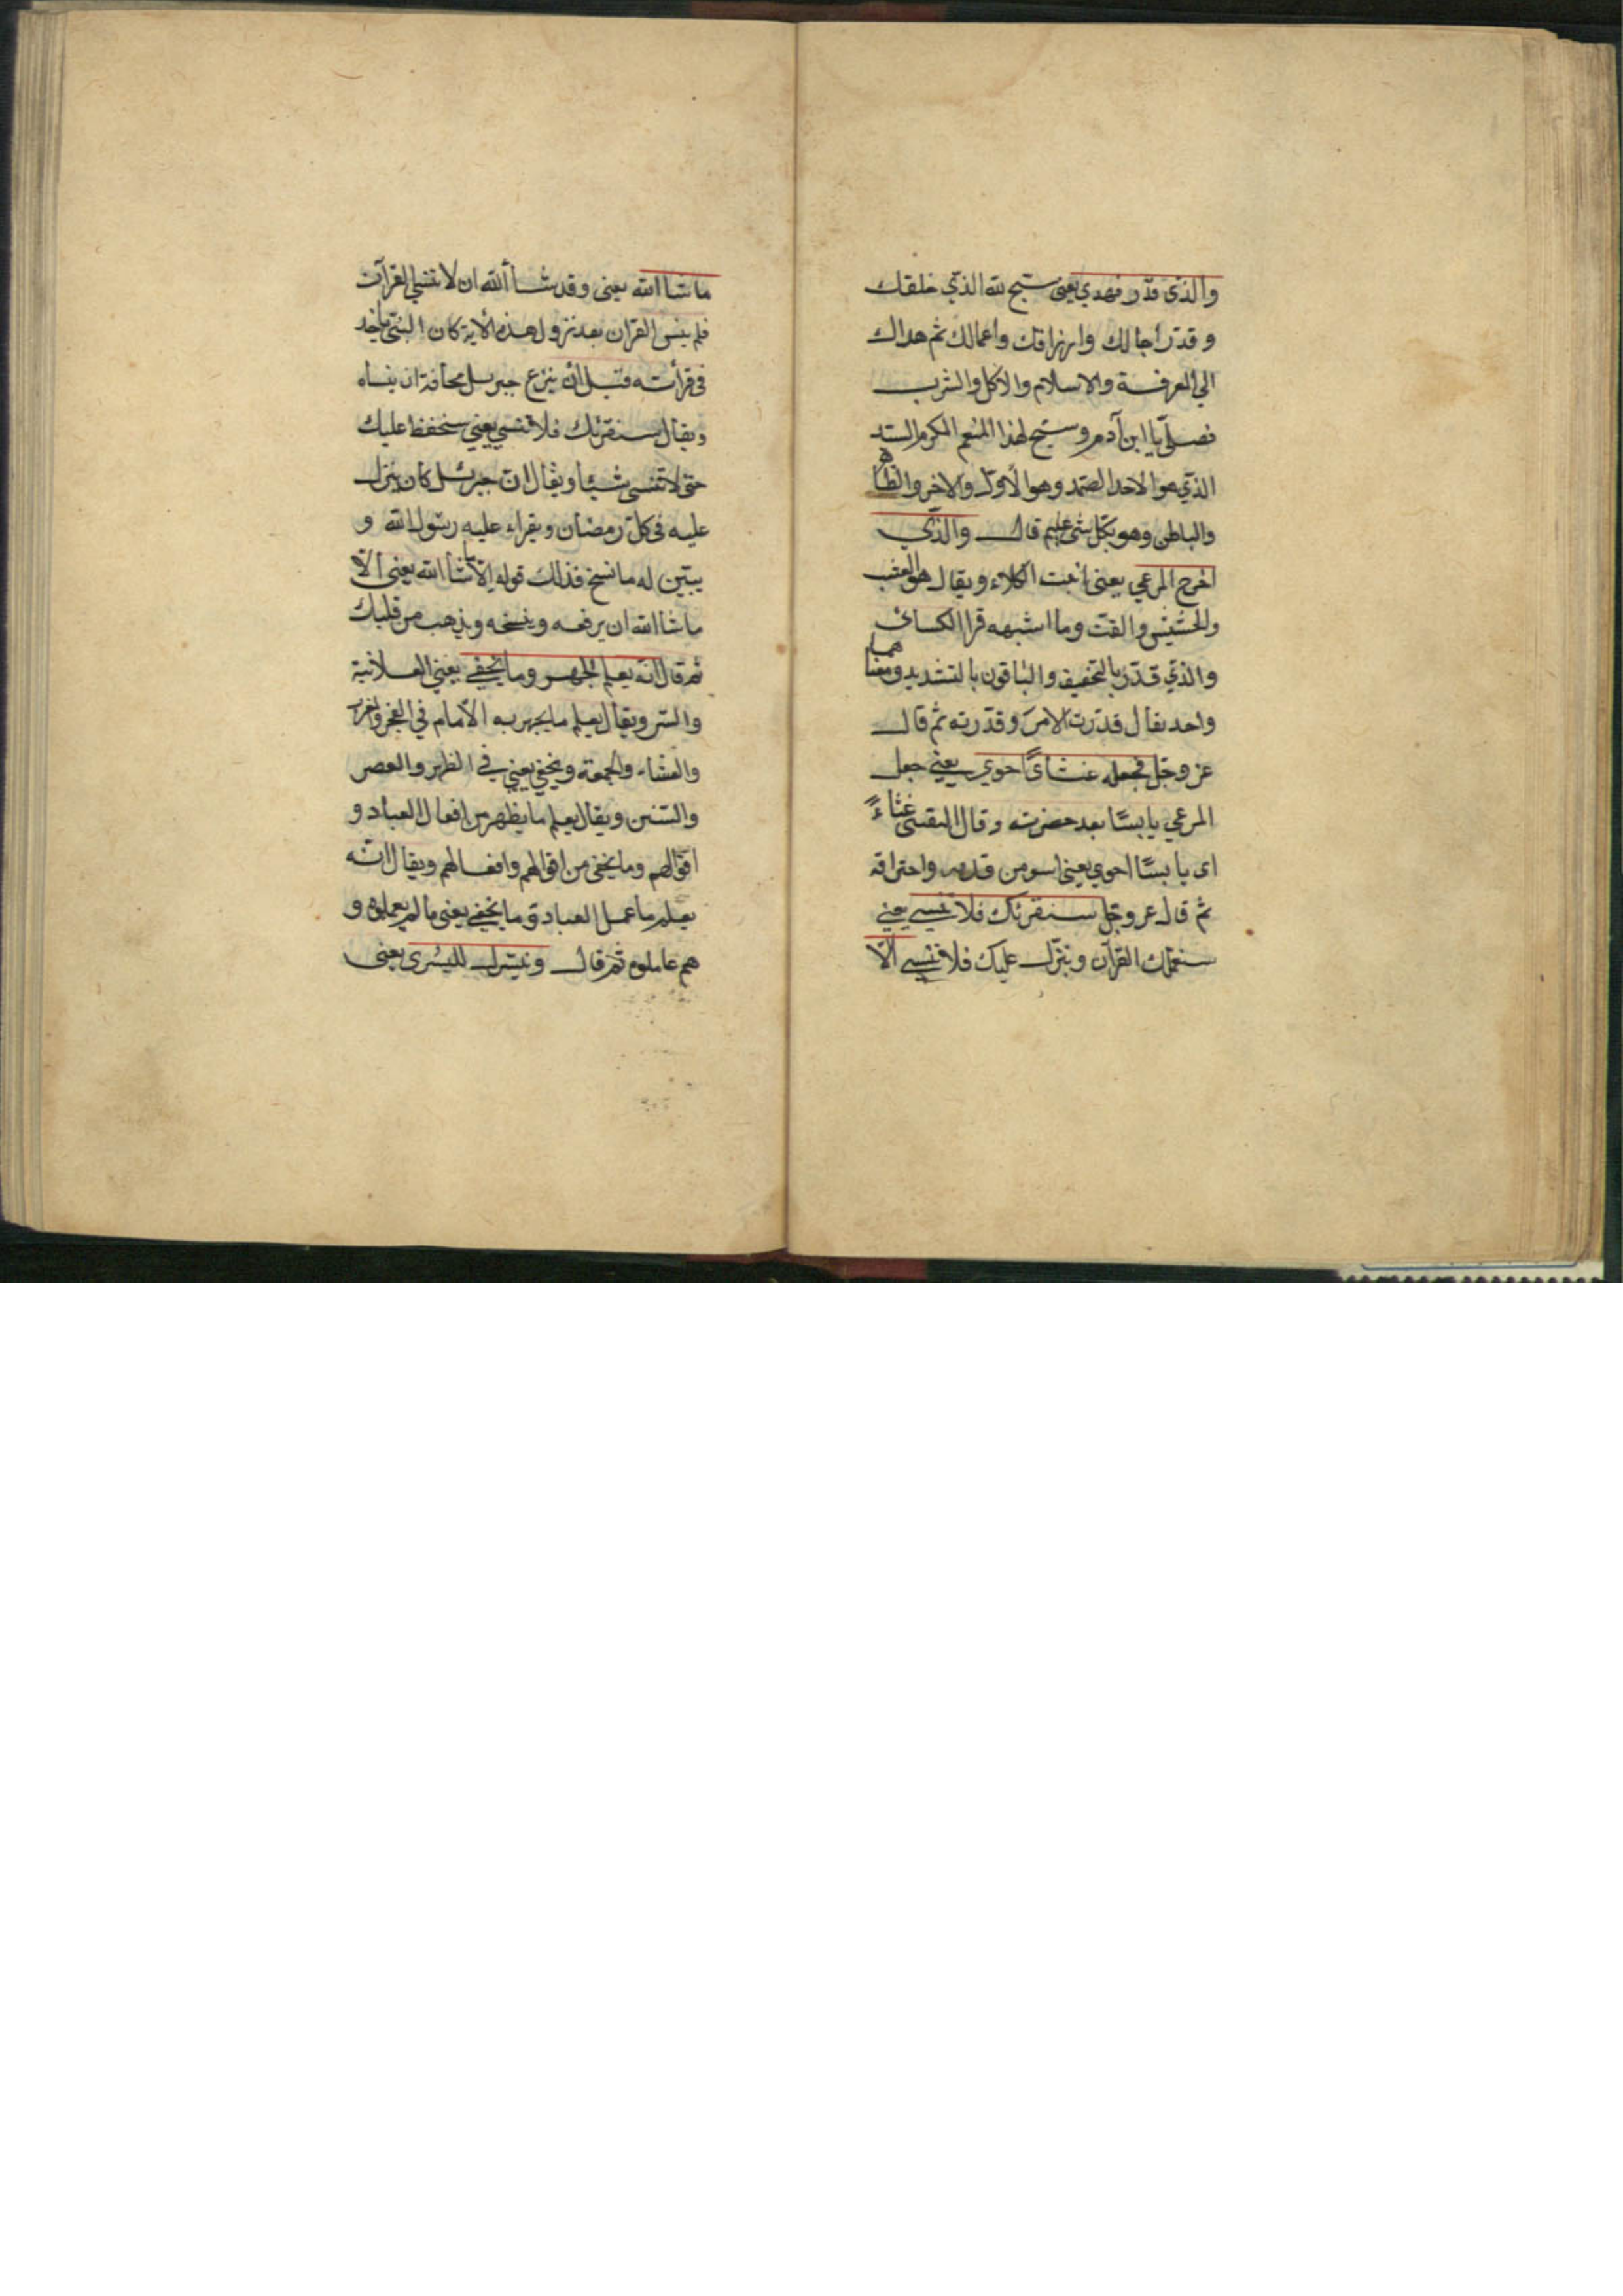 والذي قدّر فهدي يعني سبّح لله الذي خلقك
وقدّر اجالك وارزاقك واعمالك ثم هداك
الي المعرفة والاسلام والاكل والشرب
فصلّ يا ابن آدم وسبّح لهذا المنعم المكرم السيّد
الذي هو الاحد الصّمد وهو الأوّل والاخر والظاهر
والباطن وهو بكلّ شئ عليم قال والّذي
اخرج المرعي يعني انبت الكلاء ويقال هو العشب
والحشيش والقتّ وما اشبهه قرا الكسائي
والذي قدر بالتخفيف والباقون بالتشديد ومعناهما
واحد يقال قدرت الامر وقدّرته ثم قال
عز وجلّ فجعله غثاءً احوي يعني جعل
المرعي يابسًا بعد خضرته وقال القتبي غثاءً
اى يابسًا احوي يعني اسود من قدمه واحتراقه
ثم قال عز وجلّ سنقرئك فلا تنسي يعني
سنعلمك القرآن وينزل عليك فلا تنسي الّا
ما شا الله يعني وقد شاء الله ان لا تنسي القرآن
فلم ينس القرآن بعد نزول هذه الأية كان النبي ياخذ
في قرأته قبل ان ينزع جبريل مخافة ان ينساه
ويقال سنقرئك فلا تنسي يعني سنحفظ عليك
حتى لا تنسى شيئا ويقال انّ جبرئيل كان ينزل
عليه في كلّ رمضان ويقراء عليه رسول الله و
يبيّن له ما نسخ فذلك قوله الّا ما شاالله يعني الّا
ما شاالله ان يرفعه وينسخه ويذهب من قلبك
ثم قال انّه يعلم الجهر وما يخفي يعني العلانية
والسّر ويقال يعلم ما يجهر به الأمام في الفجر والمغرب
والعشاء والجمعة ويخفي يعني في الظهر والعصر
والسّنن ويقال يعلم ما يظهر من افعال العباد و
اقوالهم وما يخفي من اقوالهم وافعالهم ويقال انّه
يعلم ما عمل العباد وما يخفي يعني ما لم يعملوه و
هم عاملوه ثم قال ونيسّرك لليسرى يعني